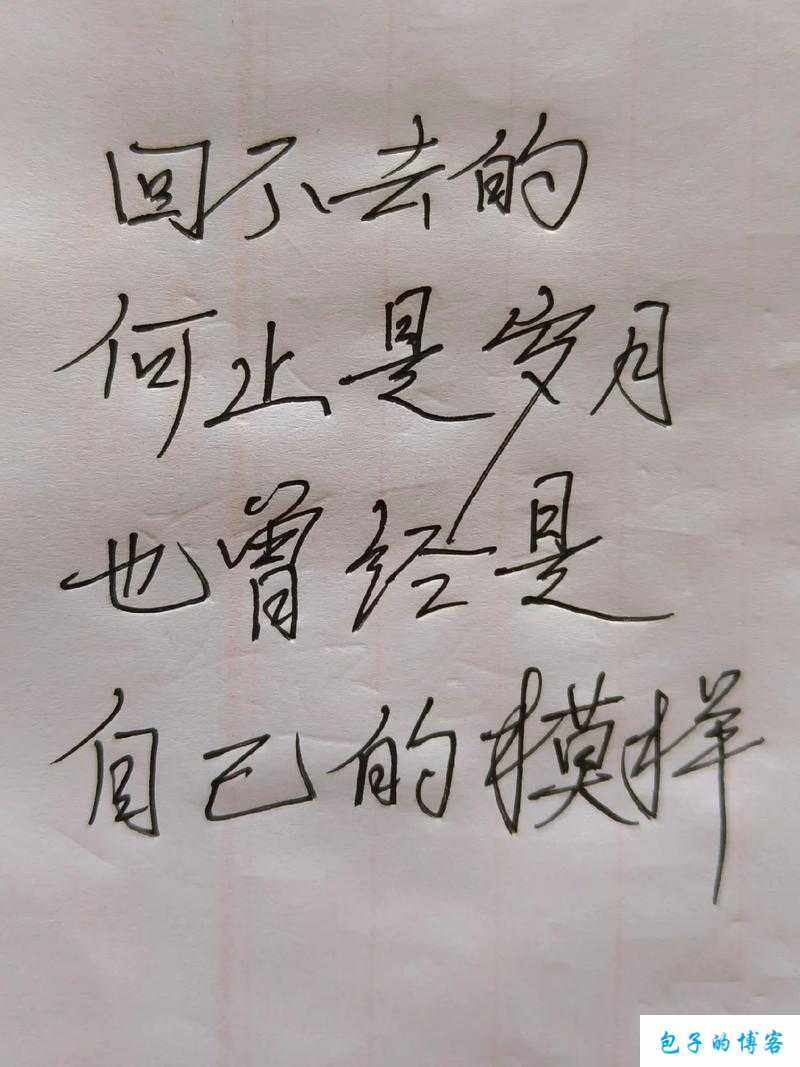 回不去的
何止是岁月
也曾经是
自己的模样
包子的博客